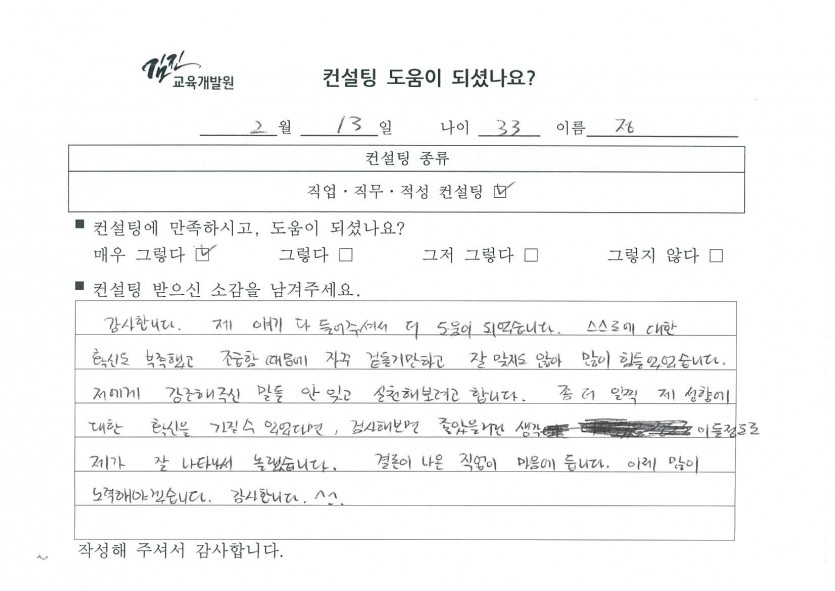 김진
교육개발원
컨설팅 도움이 되셨나요?
2 월 13 일 나이 33 이름 정
컨설팅 종류
직업·직무·적성 컨설팅 ☑
■ 컨설팅에 만족하시고, 도움이 되셨나요?
매우 그렇다 ☑ 그렇다 □ 그저 그렇다 □ 그렇지 않다 □
■ 컨설팅 받으신 소감을 남겨주세요.
감사합니다. 제 얘기 다 들어주셔서 더 도움이 되었습니다. 스스로에 대한
확신도 부족했고 조급함 때문에 자꾸 겉돌기만하고 잘 맞지도 않아 많이 힘들었었습니다.
저에게 강조해주신 말들 안 잊고 실천해보려고 합니다. 좀 더 일찍 제 성향에
대한 확신을 가질 수 있었다면, 검사해보면 좋았을거란 생각 이들정도로
제가 잘 나타나서 놀랬습니다. 결론이 나온 직업이 마음에 듭니다. 이제 많이
노력해야겠습니다. 감사합니다. ^^.
작성해 주셔서 감사합니다.